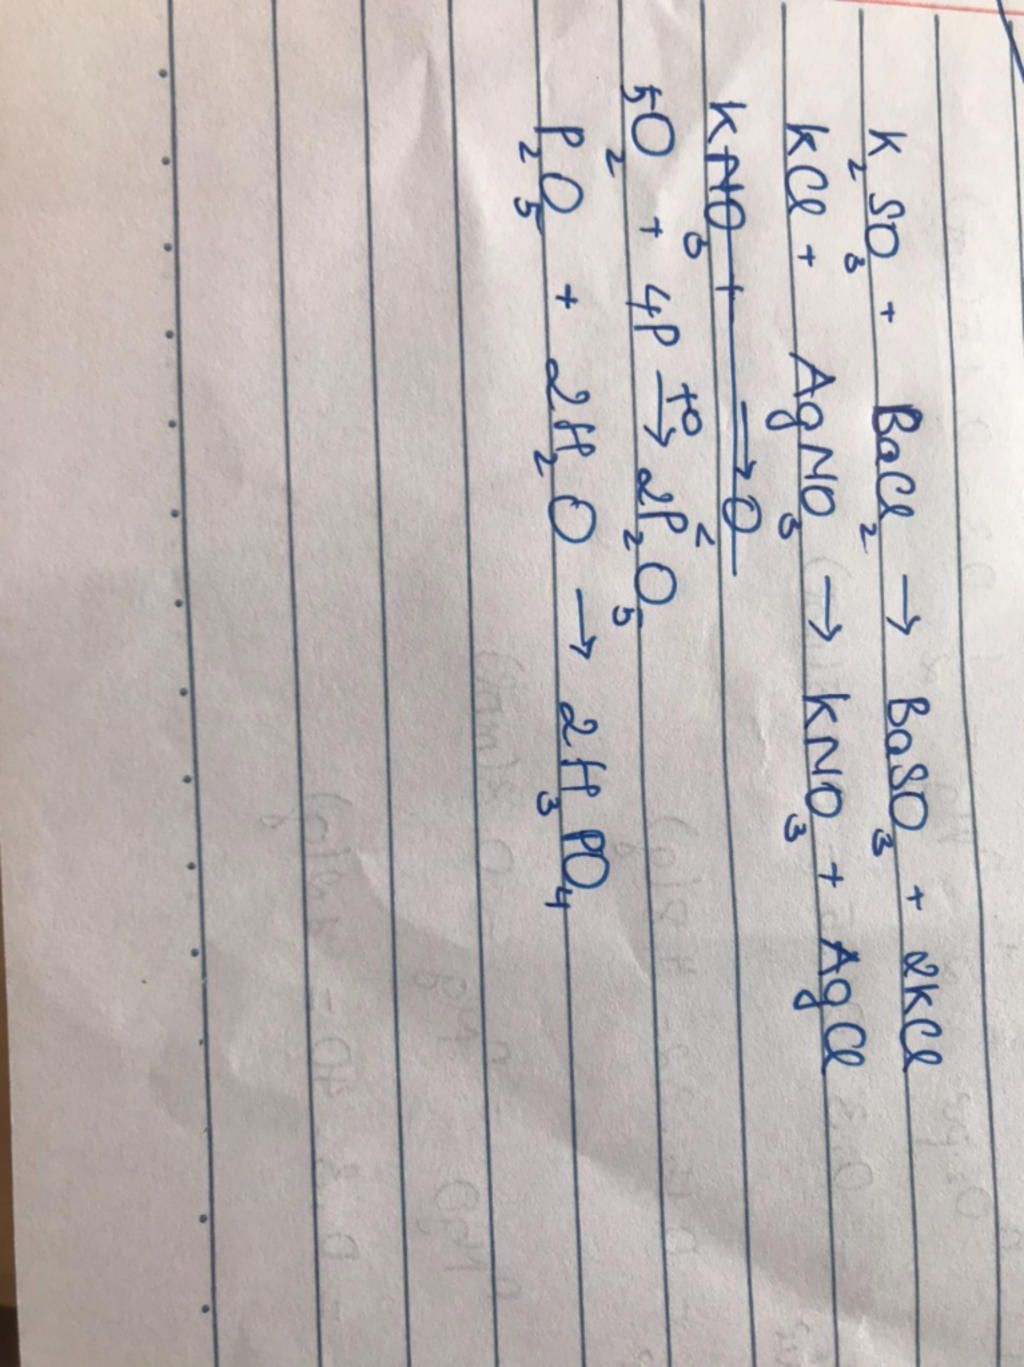 K₂SO₃ + BaCl₂ → BaSO₃ + 2KCl
KCl + AgNO₃ → KNO₃ + AgCl
5O₂ + 4P →+O 2P₂O₅
P₂O₅ + 2H₂O → 2H₃PO₄